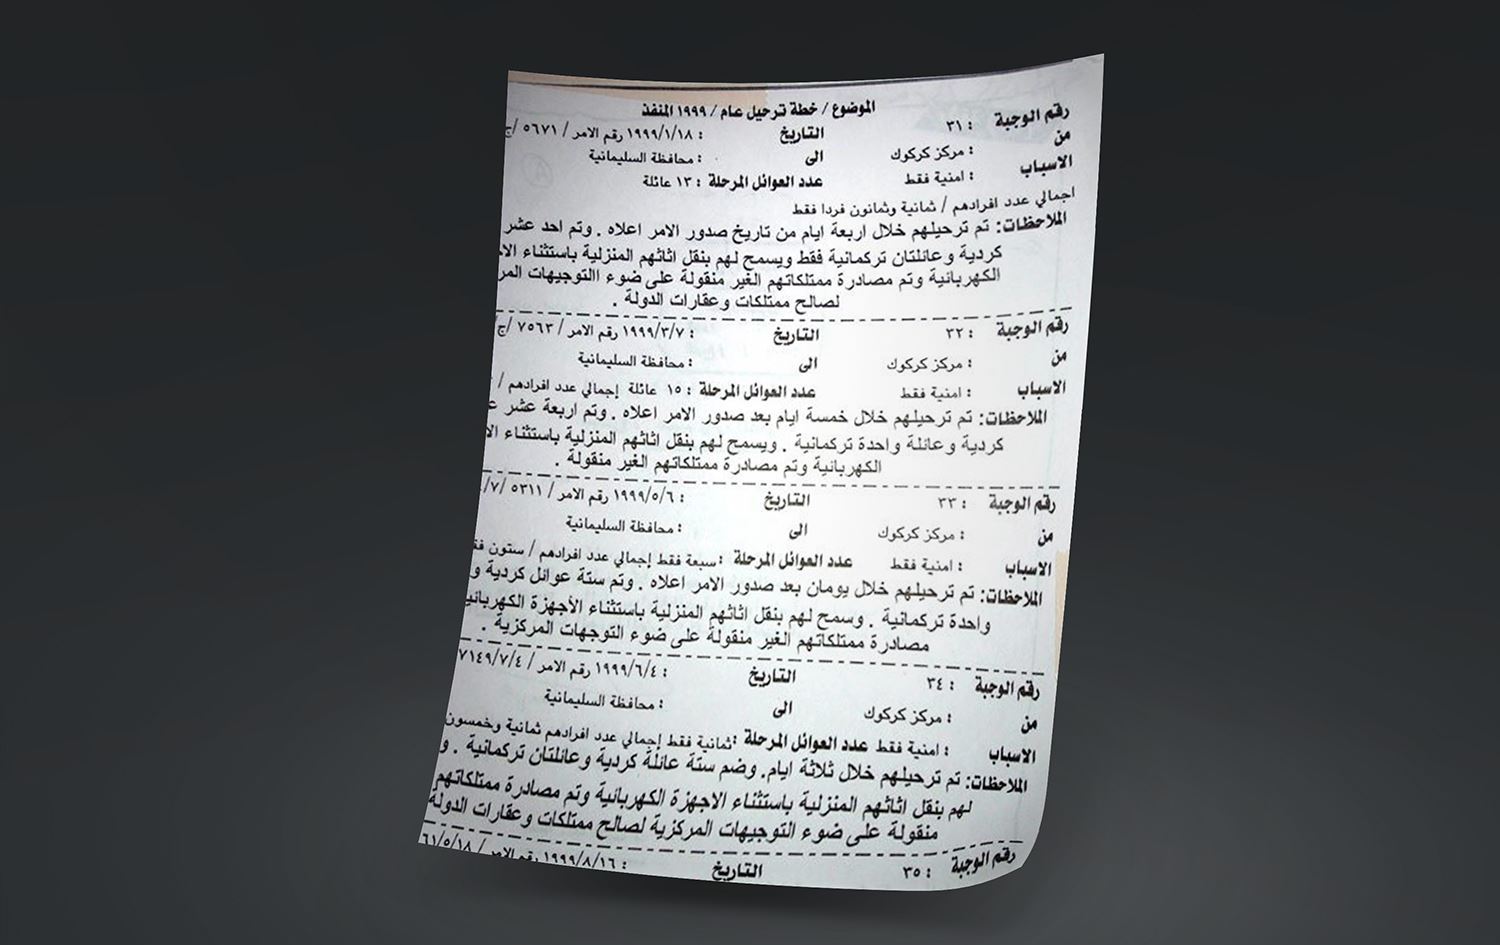 الموضوع / خطة ترحيل عام / ١٩٩٩ المنفذ
رقم الوجبة : ٣١ التاريخ : ١٩٩٩/١/١٨ رقم الامر / ٥٦٧١ /ج
من : مركز كركوك الى : محافظة السليمانية
الاسباب : امنية فقط عدد العوائل المرحلة : ١٣ عائلة
اجمالي عدد افرادهم / ثمانية وثمانون فردا فقط
الملاحظات: تم ترحيلهم خلال اربعة ايام من تاريخ صدور الامر اعلاه . وتم احد عشر
كردية وعائلتان تركمانية فقط ويسمح لهم بنقل اثاثهم المنزلية باستثناء
الكهربائية وتم مصادرة ممتلكاتهم الغير منقولة على ضوء االتوجيهات
لصالح ممتلكات وعقارات الدولة .
رقم الوجبة : ٣٢ التاريخ : ١٩٩٩/٣/٧ رقم الامر / ٧٥٦٣ /ج
من : مركز كركوك الى : محافظة السليمانية
الاسباب : امنية فقط عدد العوائل المرحلة : ١٥ عائلة إجمالي عدد افرادهم /
الملاحظات: تم ترحيلهم خلال خمسة ايام بعد صدور الامر اعلاه . وتم اربعة عشر
كردية وعائلة واحدة تركمانية . ويسمح لهم بنقل اثاثهم المنزلية باستثناء
الكهربائية وتم مصادرة ممتلكاتهم الغير منقولة .
رقم الوجبة : ٣٣ التاريخ : ١٩٩٩/٥/٦ رقم الامر / ٥٣١١ /٧/
من : مركز كركوك الى : محافظة السليمانية
الاسباب : امنية فقط عدد العوائل المرحلة :سبعة فقط إجمالي عدد افرادهم / ستون
الملاحظات: تم ترحيلهم خلال يومان بعد صدور الامر اعلاه . وتم ستة عوائل كردية و
واحدة تركمانية . وسمح لهم بنقل اثاثهم المنزلية باستثناء الأجهزة
مصادرة ممتلكاتهم الغير منقولة على ضوء التوجهات المركزية .
رقم الوجبة : ٣٤ التاريخ : ١٩٩٩/٦/٤ رقم الامر / ٧١٤٩/٧/٤
من : مركز كركوك الى : محافظة السليمانية
الاسباب : امنية فقط عدد العوائل المرحلة :ثمانية فقط إجمالي عدد افرادهم ثمانية وخمسون
الملاحظات: تم ترحيلهم خلال ثلاثة ايام. وضم ستة عائلة كردية وعائلتان تركمانية . و
لهم بنقل اثاثهم المنزلية باستثناء الاجهزة الكهربائية وتم مصادرة ممتلكاتهم
منقولة على ضوء التوجيهات المركزية لصالح ممتلكات وعقارات الدولة
رقم الوجبة : ٣٥ التاريخ : ١٩٩٩/٨/١٦ رقم الامر / ٦١/٥/١٨